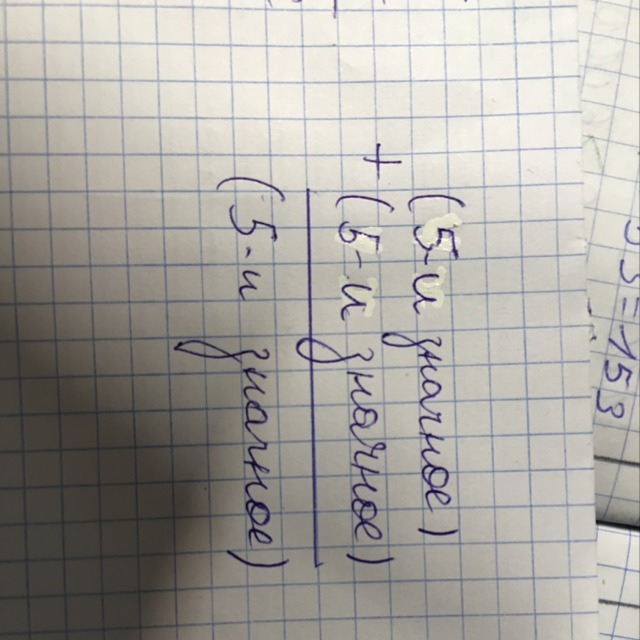 (5-и значное)
+
(5-и значное)
(5-и значное)
53=153